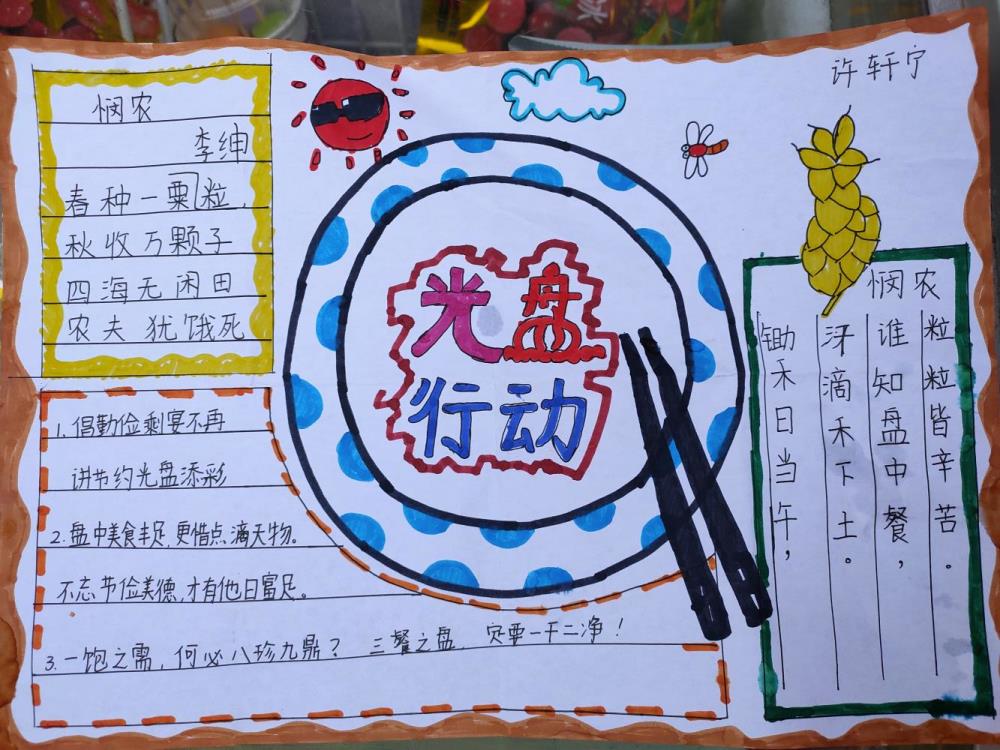 许轩宁
悯农
李绅
春种一粟粒,
秋收万颗子
四海无闲田
农夫犹饿死
光盘
行动
悯农
锄禾日当午,
汗滴禾下土。
谁知盘中餐,
粒粒皆辛苦。
1.倡勤俭剩宴不再
讲节约光盘添彩
2.盘中美食丰足,更惜点滴天物。
不忘节俭美德,才有他日富足。
3.一饱之需,何必八珍九鼎?三餐之盘,定要一干二净!